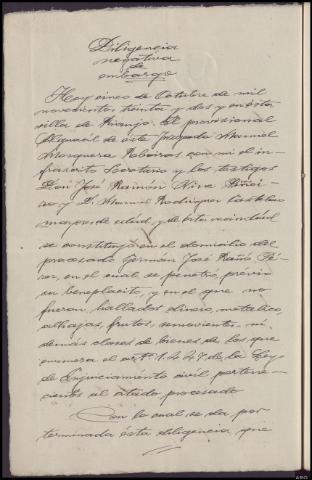 Diligencia
negativa
de
embargo
Hoy cinco de Octubre de mil
novecientos treinta y dos y en esta
villa de Rianjo. El provisional
Alguacil de este Juzgado Manuel
Mosquera Raboiras con mi el in-
frascrito Secretario y los testigos
Don José Ramón Piñei-
ro y D. Manuel Rodriguez Castelao
mayores de edad y de esta vecindad
se constituyó en el domicilio del
procesado Germán José Rañó Pé-
rez, en el cual se penetró, previo
su beneplacito, y en el que no
fueron hallados dinero, metalico,
alhajas, frutos, semovientes, ni
demás clases de bienes de los que
enumera el artº. 1.447 de la Ley
de Enjuiciamiento civil pertene-
cientes al citado procesado
Con lo cual se da por
terminada ésta diligencia que